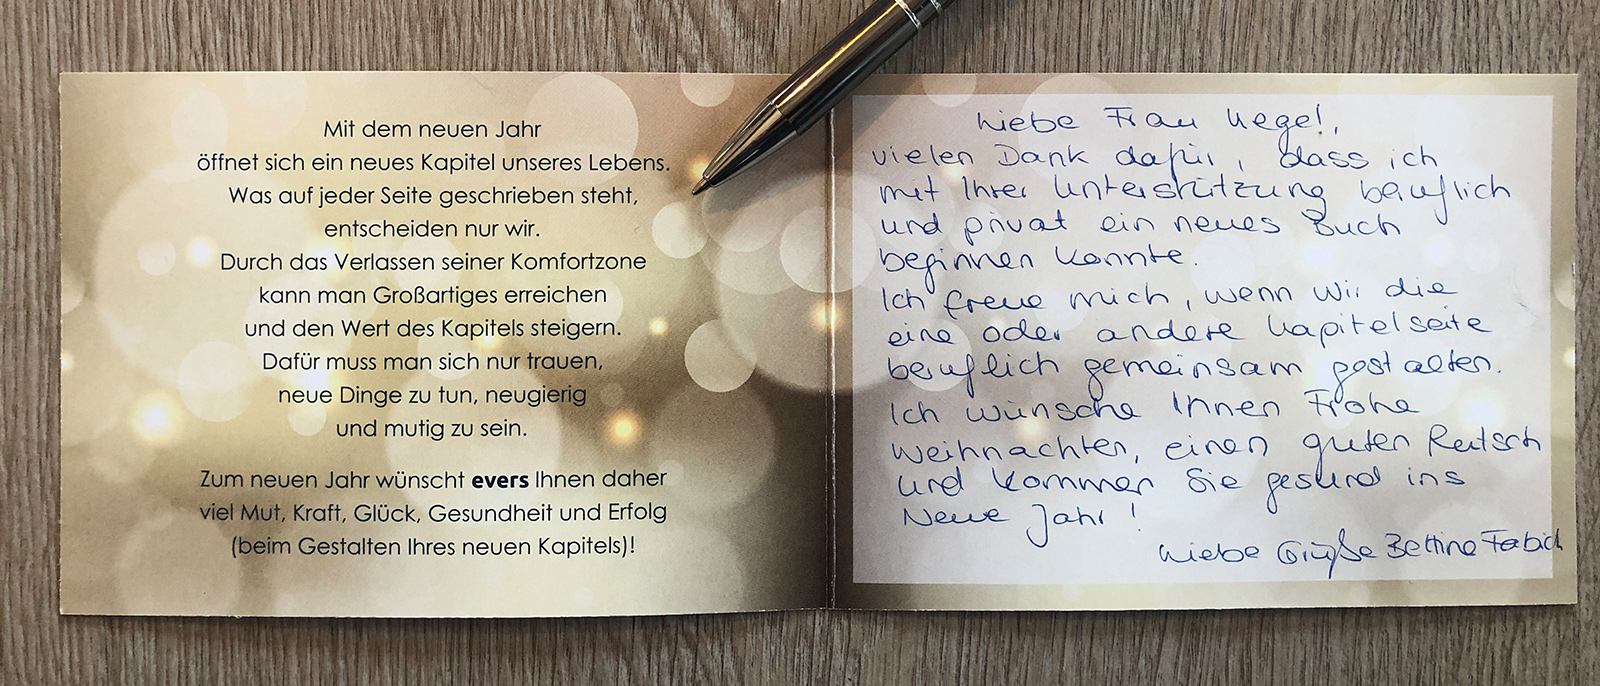 Mit dem neuen Jahr
öffnet sich ein neues Kapitel unseres Lebens.
Was auf jeder Seite geschrieben steht,
entscheiden nur wir.
Durch das Verlassen seiner Komfortzone
kann man Großartiges erreichen
und den Wert des Kapitels steigern.
Dafür muss man sich nur trauen,
neue Dinge zu tun, neugierig
und mutig zu sein.
Zum neuen Jahr wünscht evers Ihnen daher
viel Mut, Kraft, Glück, Gesundheit und Erfolg
(beim Gestalten Ihres neuen Kapitels)!
Liebe Frau Kegel,
vielen Dank dafür, dass ich
mit Ihrer Unterstützung beruflich
und privat ein neues Buch
beginnen konnte.
Ich freue mich, wenn wir die
eine oder andere Kapitelseite
beruflich gemeinsam gestalten.
Ich wünsche Ihnen Frohe
Weihnachten, einen guten Rutsch
und kommen Sie gesund ins
Neue Jahr!
Liebe Grüße Bettina Fabich